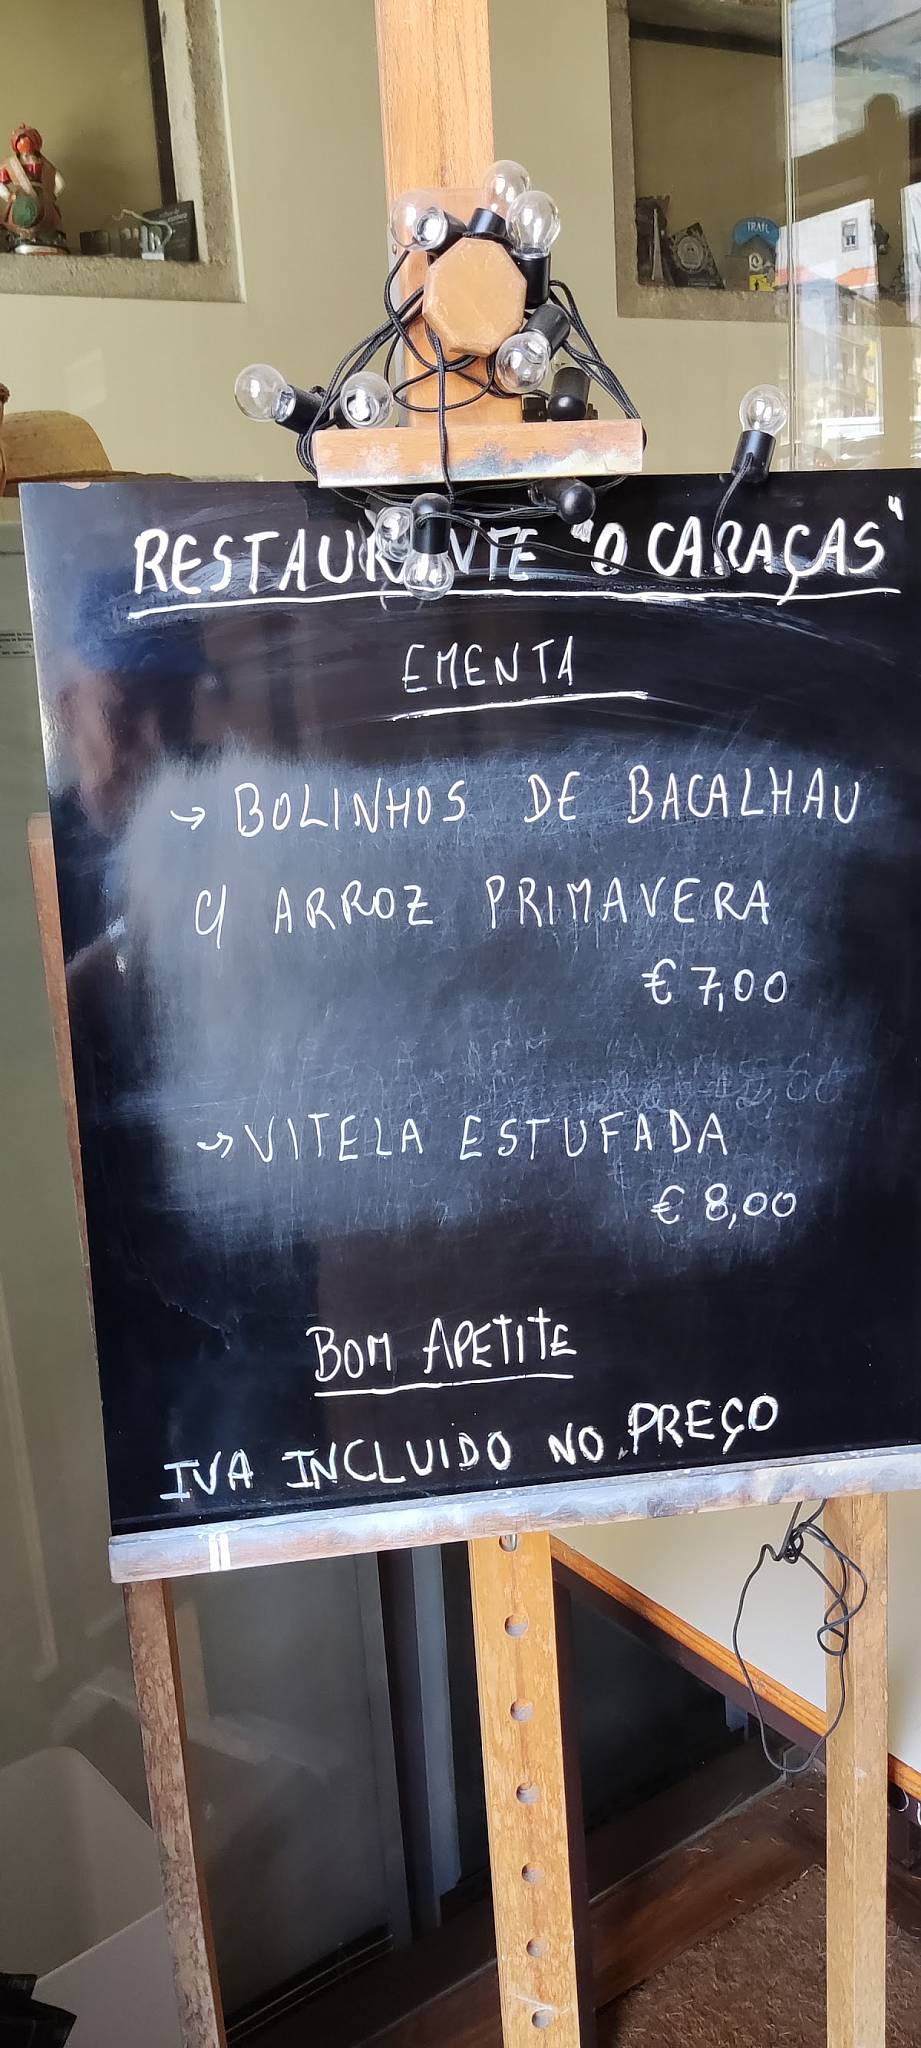 TRAIL
RESTAURANTE "O CARAÇAS"
EMENTA
→ BOLINHOS DE BACALHAU
C/ ARROZ PRIMAVERA
€ 7,00
→ VITELA ESTUFADA
€ 8,00
BOM APETITE
IVA INCLUIDO NO PREÇO